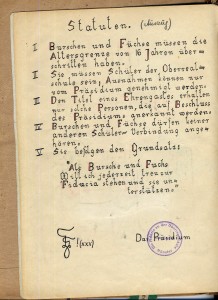 Statuten. (Auszug)
I Burschen und Füchse müssen die
Altersgrenze von 16 Jahren über-
schritten haben.
II Sie müssen Schüler der Oberreal-
schule sein, Ausnahmen können nur
vom Präsidium genehmigt werden.
III Den Titel eines Ehrengastes erhalten
nur solche Personen, die auf Beschluss
des Präsidiums anerkannt werden.
IV Burschen und Füchse dürfen keiner
anderen Schüler-Verbindung ange-
hören.
V Sie bejahen den Grundsatz
"Als Bursche und Fuchs
will ich jederzeit treu zur
Fiducia stehen und sie un-
terstützen."
! (xxx)
Das Präsidium